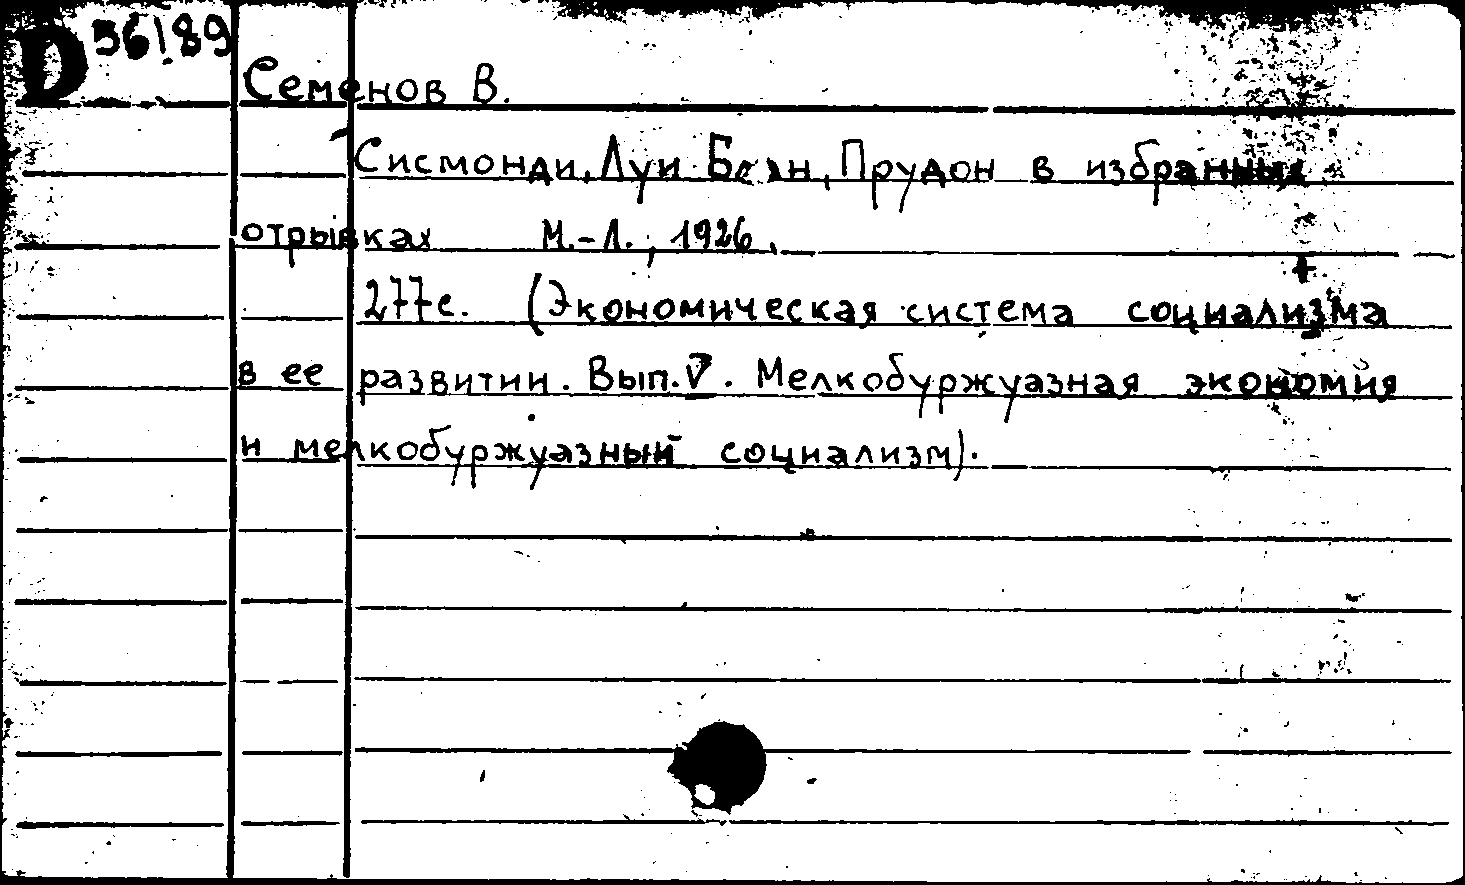 D 56/89
Семенов В.
Сисмонди, Луи Блан, Прудон в избранных
отрывках М.-Л., 1926.
277с. (Экономическая система социализма
в ее развитии. Вып. V. Мелкобуржуазная экономия
и мелкобуржуазный социализм).